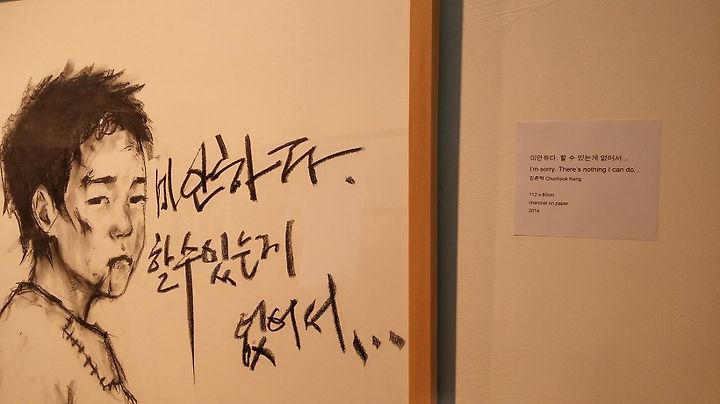 미안하다.
할수있는게
없어서...
미안하다. 할 수 있는게 없어서...
I'm sorry. There's nothing I can do...
강춘혁 Chunhyok Kang
112 x 80cm
charcoal on paper
2014